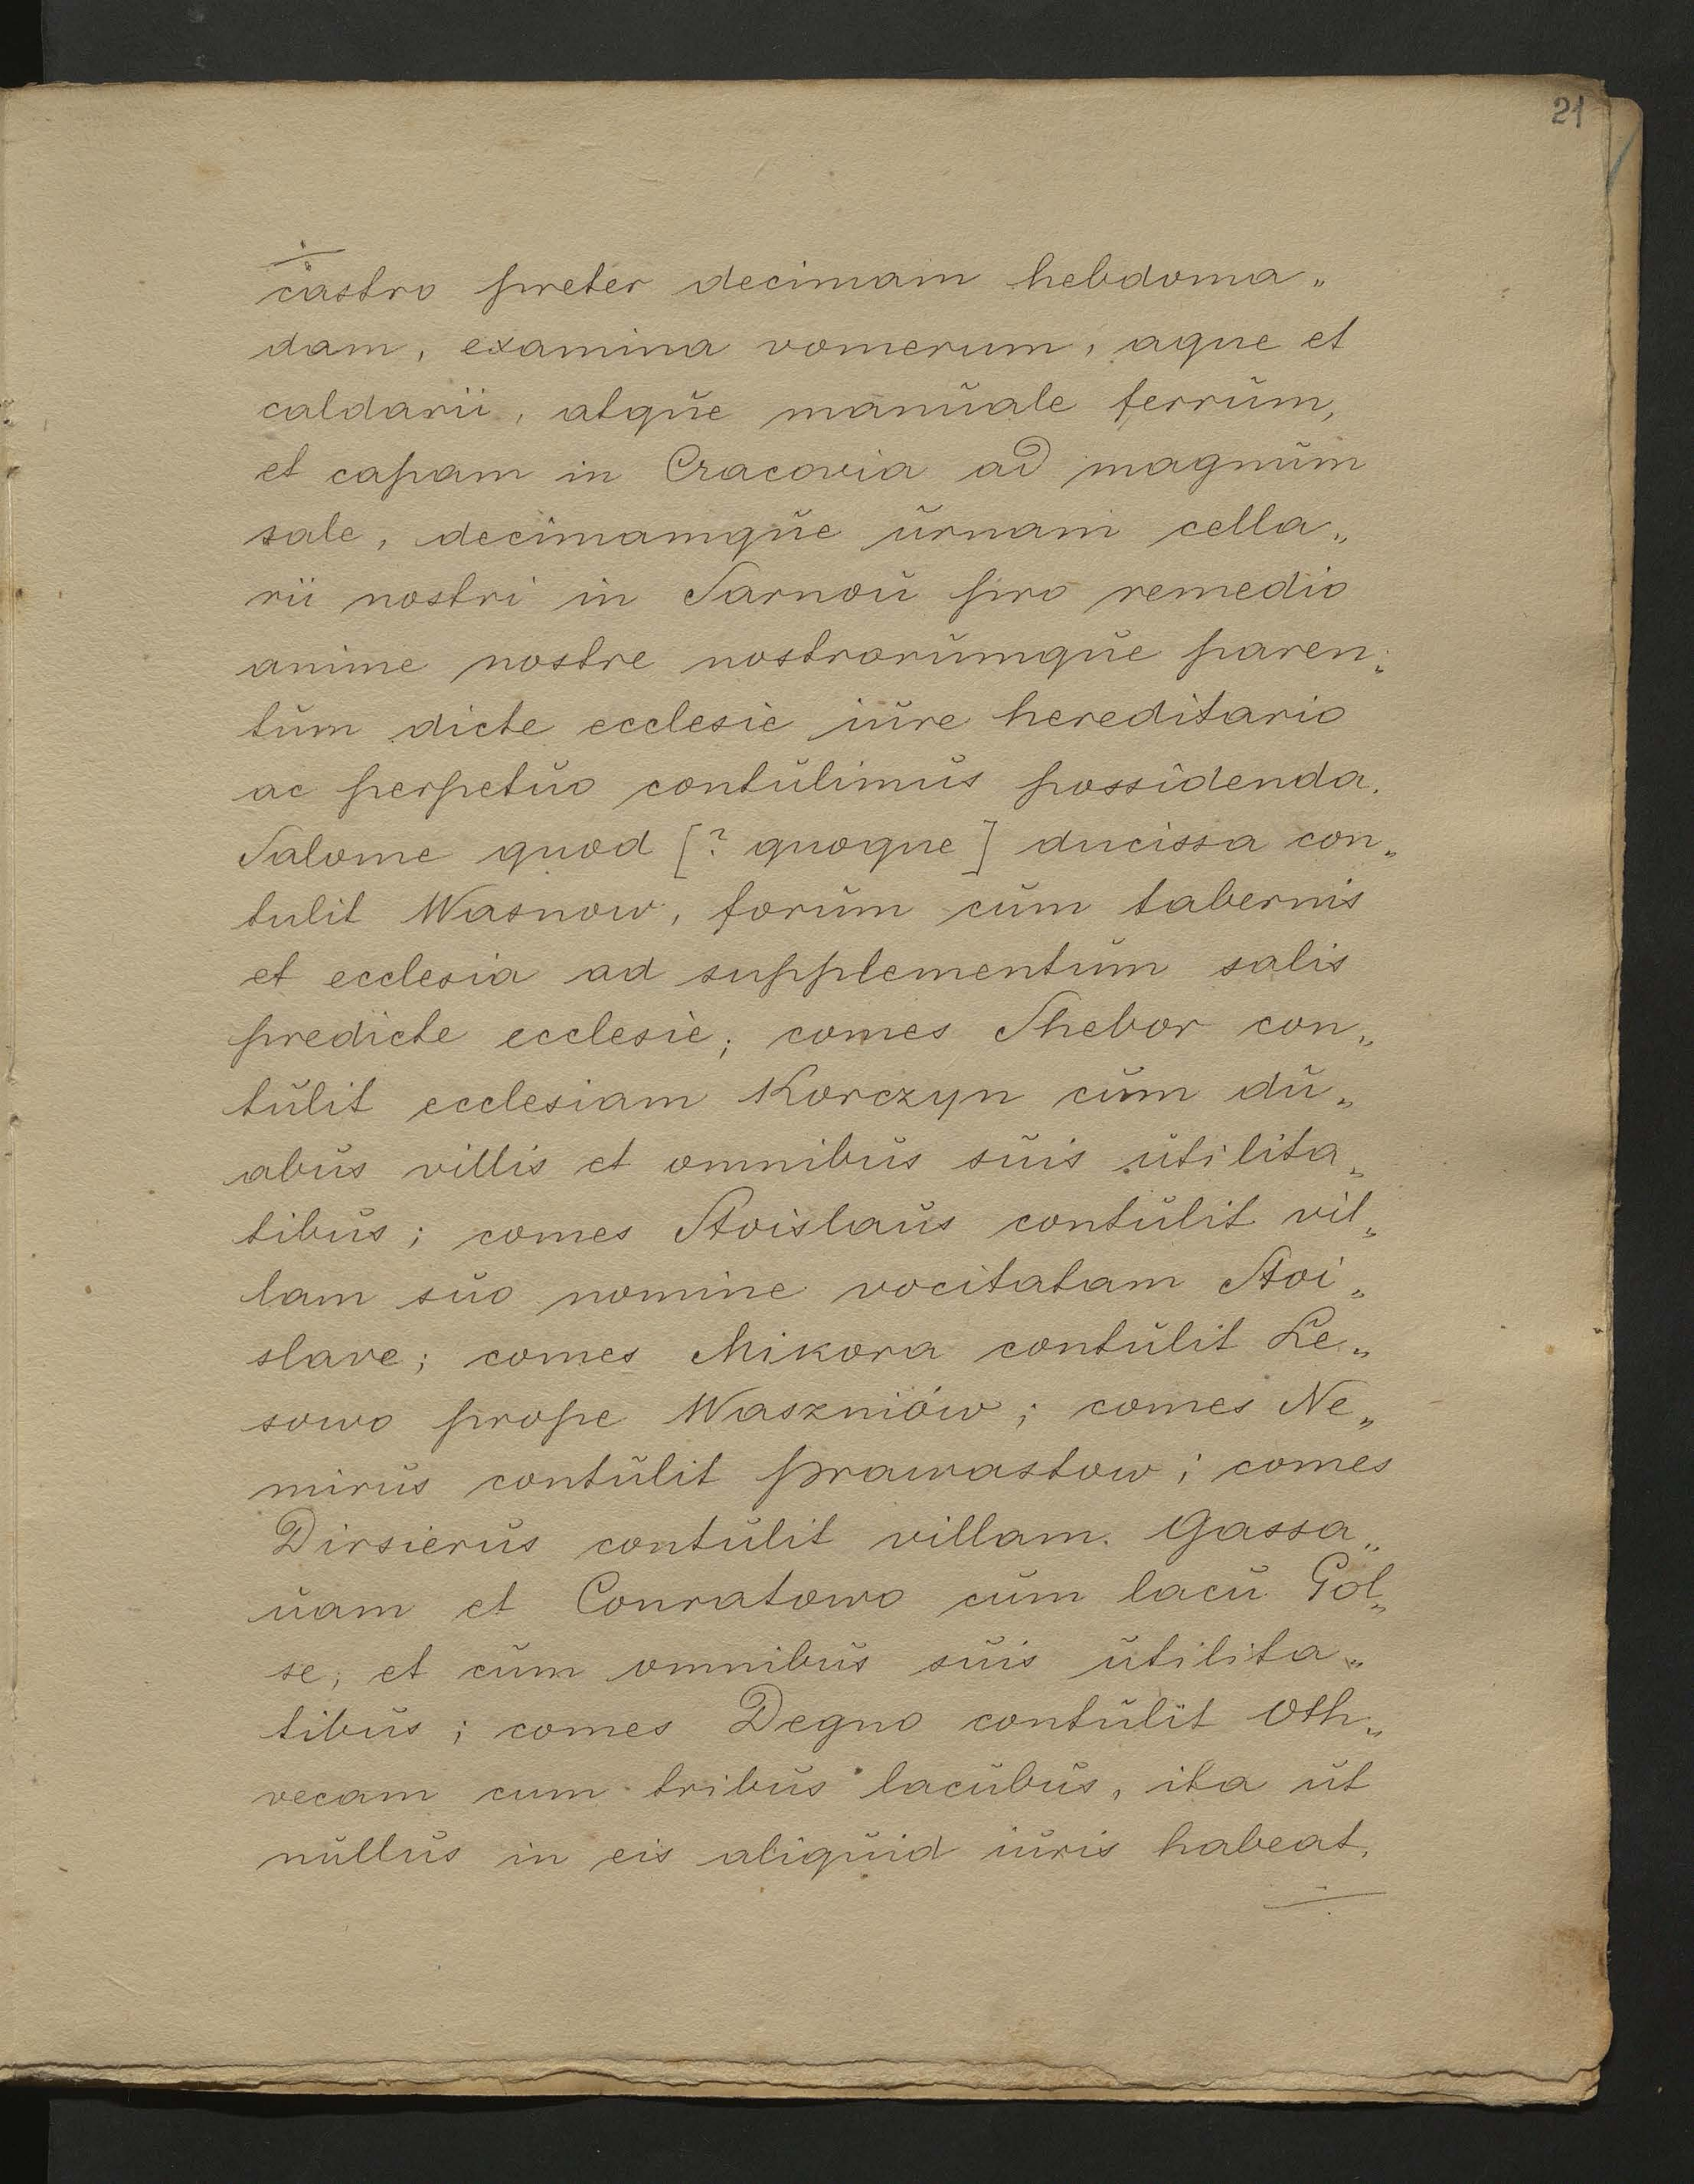 21
castro preter decimam hebdoma„
dam, examina vomerum, aque et
caldarii, atque manuale ferrum,
et capam in Cracovia ad magnum
sale, decimamque urnam cella„
rii nostri in Sarnou pro remedio
anime nostre nostrorumque paren„
tum dicte ecclesie iure hereditario
ac perpetuo contulimus possidenda.
Salome quod [? quoque] ducissa con„
tulit Wasnow, forum cum tabernis
et ecclesia ad supplementum salis
predicte ecclesie; comes Shebor con„
tulit ecclesiam Korczyn cum du„
abus villis et omnibus suis utilita„
tibus; comes Stoislaus contulit vil„
lam suo nomine vocitatam Stoi„
slave; comes Mikora contulit Le„
sowo prope Waszniów; comes Ne„
mirus contulit Prawastow; comes
Dirsierus contulit villam Gassa„
uam et Conratowo cum lacu Gol„
se, et cum omnibus suis utilita„
tibus; comes Degno contulit Oth„
vecam cum tribus lacubus, ita ut
nullus in eis aliquid iuris habeat,